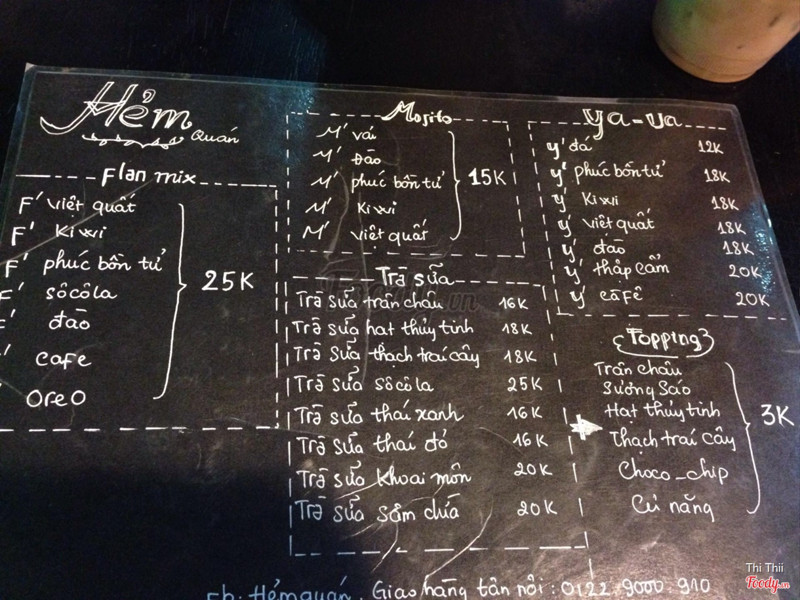 Hẻm
Quán
Flan mix
F' việt quất
F' Kiwi
F' phúc bồn tử
F' sôcôla
F' đào
F' cafe
Oreo
25K
Mojito
M' vải
M' Đào
M' phúc bồn tử
M' Kiwi
M' việt quất
15K
Trà sữa
Trà sữa trân châu 16K
Trà sữa hạt thủy tinh 18K
Trà sữa thạch trái cây 18K
Trà sữa sôcôla 25K
Trà sữa thái xanh 16K
Trà sữa thái đỏ 16K
Trà sữa khoai môn 20K
Trà sữa sầm dứa 20K
Ya-ua
y' đá 12K
y' phúc bồn tử 18K
y' kiwi 18K
y' việt quất 18K
y' đào 18K
y' thập cẩm 20K
y' càfê 20K
Topping
Trân châu
Sương Sáo
Hạt thủy tinh
Thạch trái cây
Choco_chip
Củ năng
3K
Fb: Hẻm quán. Giao hàng tận nơi: 0122.9000.910
Foody.vn
Thi Thii
Foody.vn